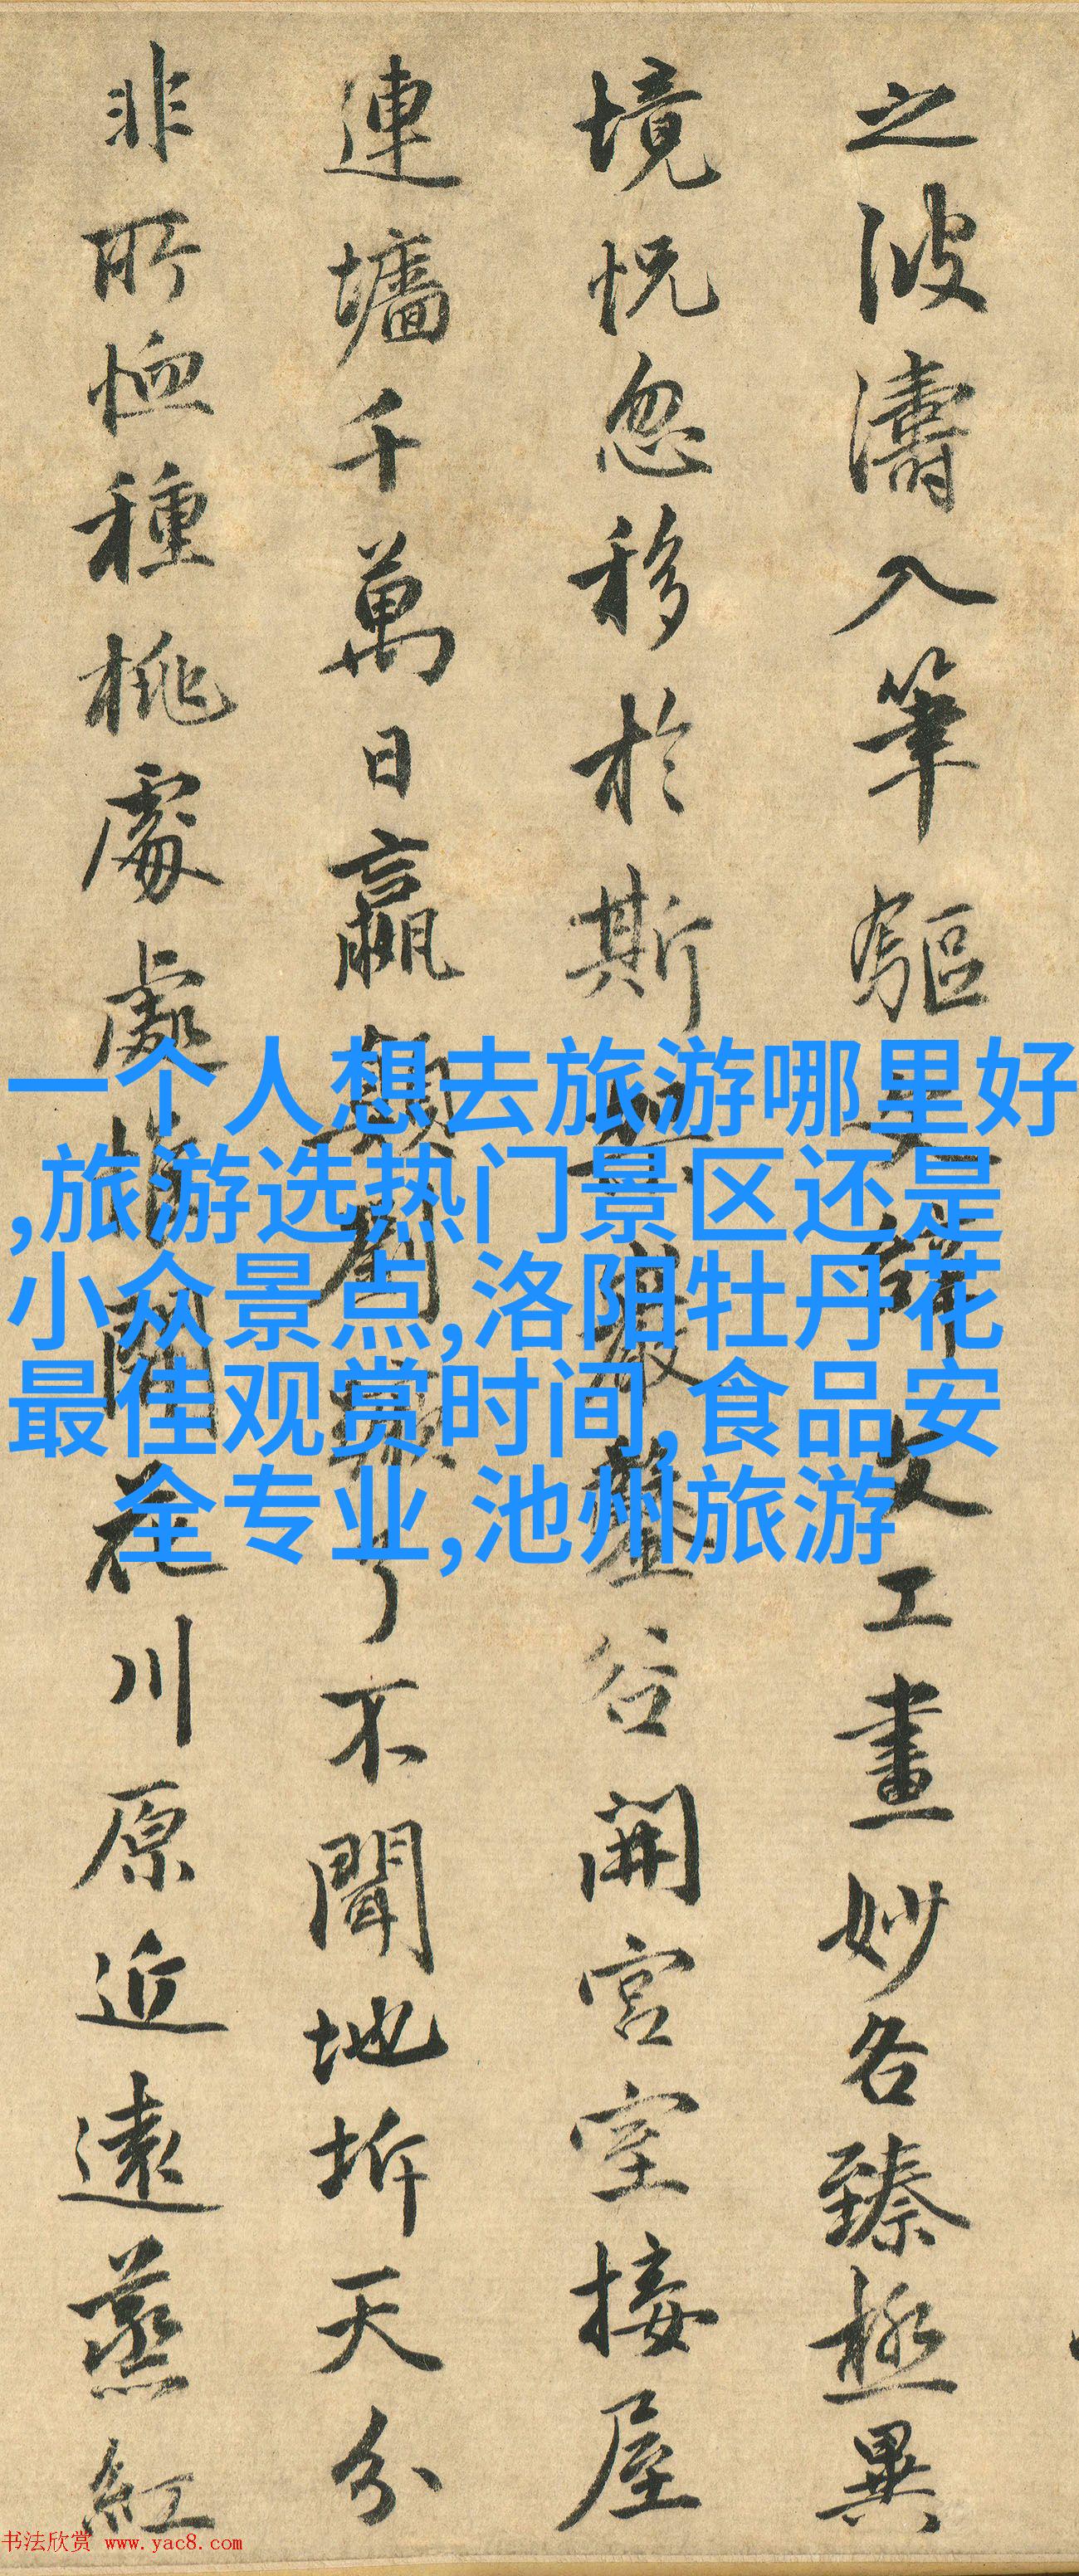 之波濤入筆驅文辭文工畫妙各臻極異
境怳忽移於斯架巖鑿谷開宮室接屋
連墻千萬日嬴顛劉蹶了不聞地坼天分
非所恤種桃處處惟開花川原近遠蒸紅
一个人想去旅游哪里好
,旅游选热门景区还是
小众景点,洛阳牡丹花
最佳观赏时间,食品安
全专业,池州旅游
书法欣赏 www.yac8.com